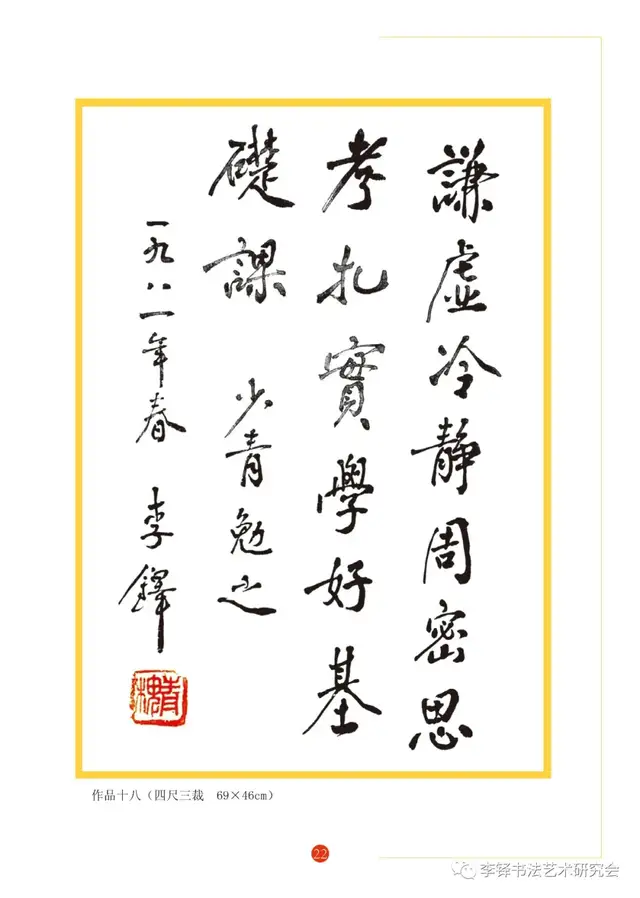 謙虛冷靜周密思
考扎實學好基
礎課 少青勉之
一九八一年春 李鐸
青槐
作品十八（四尺三裁 69×46cm）
22
李铎书法艺术研究会